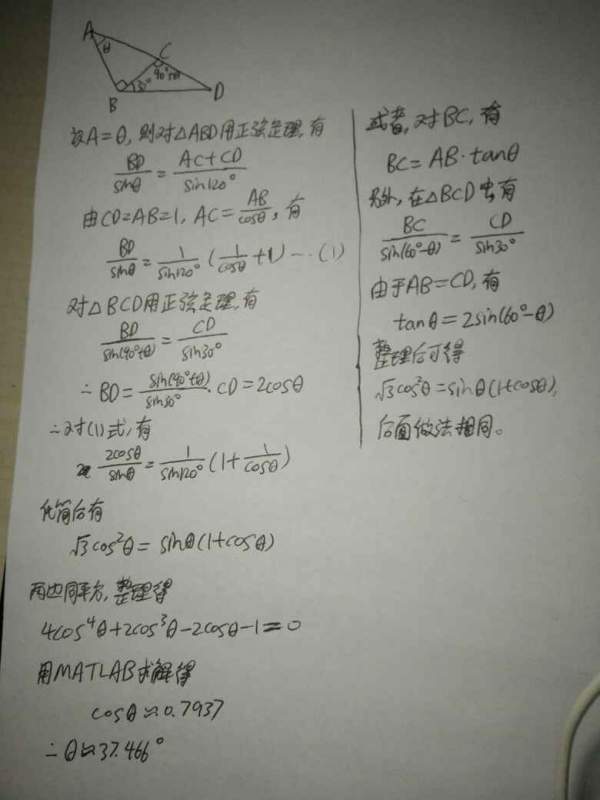 A
θ
C
90°+θ
B
30°
D
设A=θ, 则对△ABD用正弦定理, 有
BD/sinθ = (AC+CD)/sin120°
由CD=AB=1, AC=AB/cosθ, 有
BD/sinθ = 1/sin120° (1/cosθ + 1) … (1)
对△BCD用正弦定理, 有
BD/sin(90°+θ) = CD/sin30°
∴ BD = sin(90°+θ)/sin30° · CD = 2cosθ
∴对(1)式, 有
2cosθ/sinθ = 1/sin120° (1 + 1/cosθ)
化简后有
√3cos²θ = sinθ(1+cosθ)
两边同平方, 整理得
4cos⁴θ+2cos³θ-2cosθ-1=0
用MATLAB求解得
cosθ≈0.7937
∴θ≈37.466°
或者, 对BC, 有
BC=AB·tanθ
另外, 在△BCD中有
BC/sin(60°-θ) = CD/sin30°
由于AB=CD, 有
tanθ=2sin(60°-θ)
整理后可得
√3cos²θ=sinθ(1+cosθ),
后面做法相同。